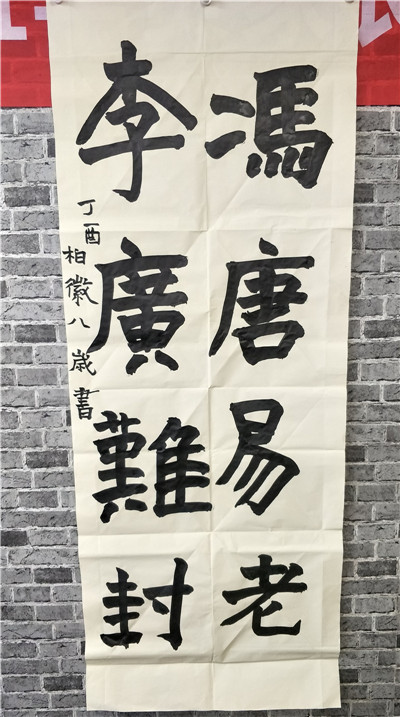 馮唐易老
李廣難封
丁酉柏徽八歳書